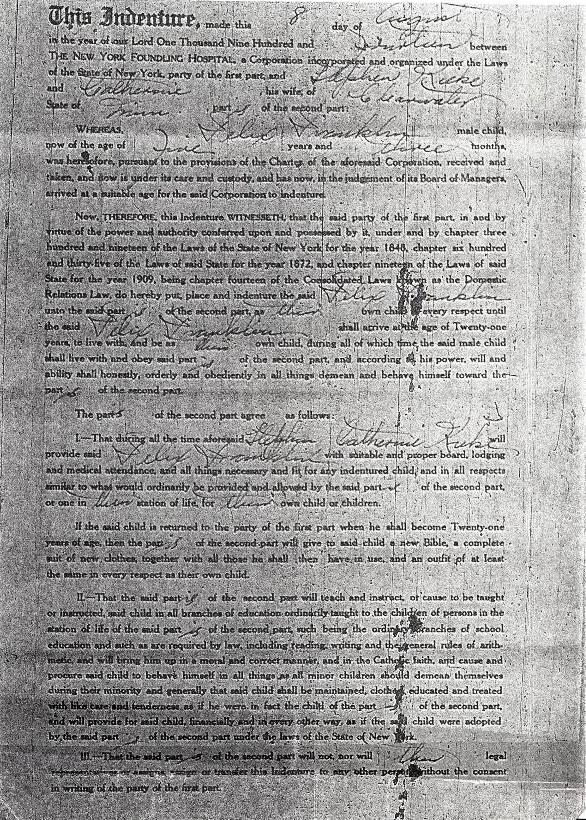 This Indenture, made this 8 day of August
in the year of our Lord One Thousand Nine Hundred and between
THE NEW YORK FOUNDLING HOSPITAL, a Corporation incorporated and organized under the Laws
of the State of New York, party of the first part, and Stephen
and Catherine his wife, of Clearwater
State of Minn part of the second part:
WHEREAS, Felix Franklin male child,
now of the age of years and three months,
was heretofore, pursuant to the provisions of the Charter of the aforesaid Corporation, received and
taken, and now is under its care and custody, and has now, in the judgement of its Board of Managers,
arrived at a suitable age for the said Corporation to indenture.
Now, THEREFORE, this Indenture WITNESSETH, that the said party of the first part, in and by
virtue of the power and authority conferred upon and possessed by it, under and by chapter three
hundred and nineteen of the Laws of the State of New York for the year 1848, chapter six hundred
and thirty-five of the Laws of said State for the year 1872, and chapter nineteen of the Laws of said
State for the year 1909, being chapter fourteen of the Consolidated Laws known as the Domestic
Relations Law, do hereby put, place and indenture the said Felix Franklin
unto the said part s of the second part, as their own child in every respect until
the said Felix Franklin shall arrive at the age of Twenty-one
years, to live with, and be as their own child, during all of which time, the said male child
shall live with and obey said part s of the second part, and according to his power, will and
ability shall honestly, orderly and obediently in all things demean and behave himself toward the
part s of the second part.
The part s of the second part agree as follows:
I.—That during all the time aforesaid Stephen Catherine will
provide said Felix Franklin with suitable and proper board, lodging
and medical attendance, and all things necessary and fit for any indentured child, and in all respects
similar to what would ordinarily be provided and allowed by the said part s of the second part,
or one in their station of life, for their own child or children.
If the said child is returned to the party of the first part when he shall become Twenty-one
years of age, then the part s of the second part will give to said child a new Bible, a complete
suit of new clothes, together with all those he shall then have in use, and an outfit of at least
the same in every respect as their own child.
II.—That the said part s of the second part will teach and instruct, or cause to be taught
or instructed, said child in all branches of education ordinarily taught to the children of persons in the
station of life of the said part s of the second part, such being the ordinary branches of school
education and such as are required by law, including reading, writing and the general rules of arith-
metic, and will bring him up in a moral and correct manner, and in the Catholic faith, and cause and
procure said child to behave himself in all things as all minor children should demean themselves
during their minority and generally that said child shall be maintained, clothed, educated and treated
with like care and tenderness as if he were in fact the child of the part s of the second part,
and will provide for said child, financially and in every other way, as if the said child were adopted
by the said part s of the second part under the laws of the State of New York.
III.—That the said part s of the second part will not, nor will their legal
representatives or assigns assign or transfer this Indenture to any other person without the consent
in writing of the party of the first part.